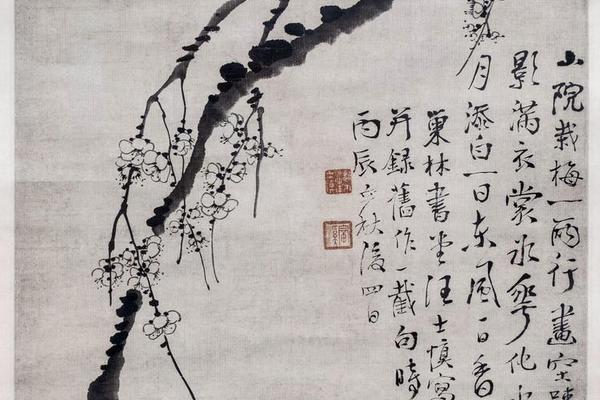 山院栽梅一兩行畫空疎
影滿衣裳冰華化水
月添白一日東風一日香
巢林書堂汪士慎寫
并録舊作一截句時
丙辰立秋後四日